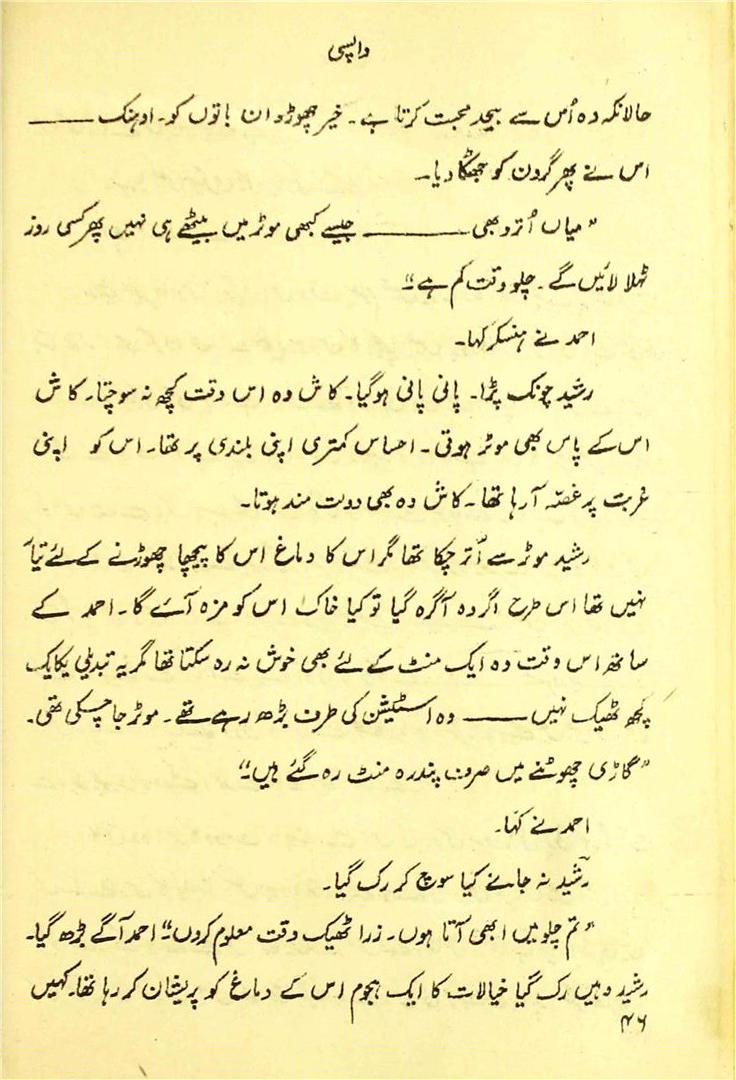 واپسی
حالانکہ وہ اُس سے بیحد محبت کرتا ہے۔ خیر چھوڑو ان باتوں کو۔ اوہنک ——
اس نے پھر گردن کو جھٹکا دیا۔
"میاں اُترو بھی —— جیسے کبھی موٹر میں بیٹھے ہی نہیں پھر کسی روز
ٹہلا لائیں گے۔ چلو وقت کم ہے"
احمد نے ہنسکر کہا۔
رشید چونک پڑا۔ پانی پانی ہوگیا۔ کاش وہ اس وقت کچھ نہ سوچتا۔ کاش
اس کے پاس بھی موٹر ہوتی۔ احساس کمتری اپنی بلندی پر تھا۔ اس کو اپنی
غربت پر غصّہ آرہا تھا۔ کاش وہ بھی دولت مند ہوتا۔
رشید موٹر سے اُتر چکا تھا مگر اس کا دماغ اس کا پیچھا چھوڑنے کے لئے تیار
نہیں تھا اس طرح اگر وہ آگرہ گیا تو کیا خاک اس کو مزہ آئے گا۔ احمد کے
ساتھ اس وقت وہ ایک منٹ کے لئے بھی خوش نہ رہ سکتا تھا مگر یہ تبدیلی یکایک
کچھ ٹھیک نہیں —— وہ اسٹیشن کی طرف بڑھ رہے تھے۔ موٹر جا چکی تھی۔
"گاڑی چھوٹنے میں صرف پندرہ منٹ رہ گئے ہیں"
احمد نے کہا۔
رشید نہ جانے کیا سوچ کر رک گیا۔
"تم چلو میں ابھی آتا ہوں۔ زرا ٹھیک وقت معلوم کروں" احمد آگے بڑھ گیا۔
رشید وہیں رک گیا خیالات کا ایک ہجوم اس کے دماغ کو پریشان کر رہا تھا۔ کہیں
۴۶